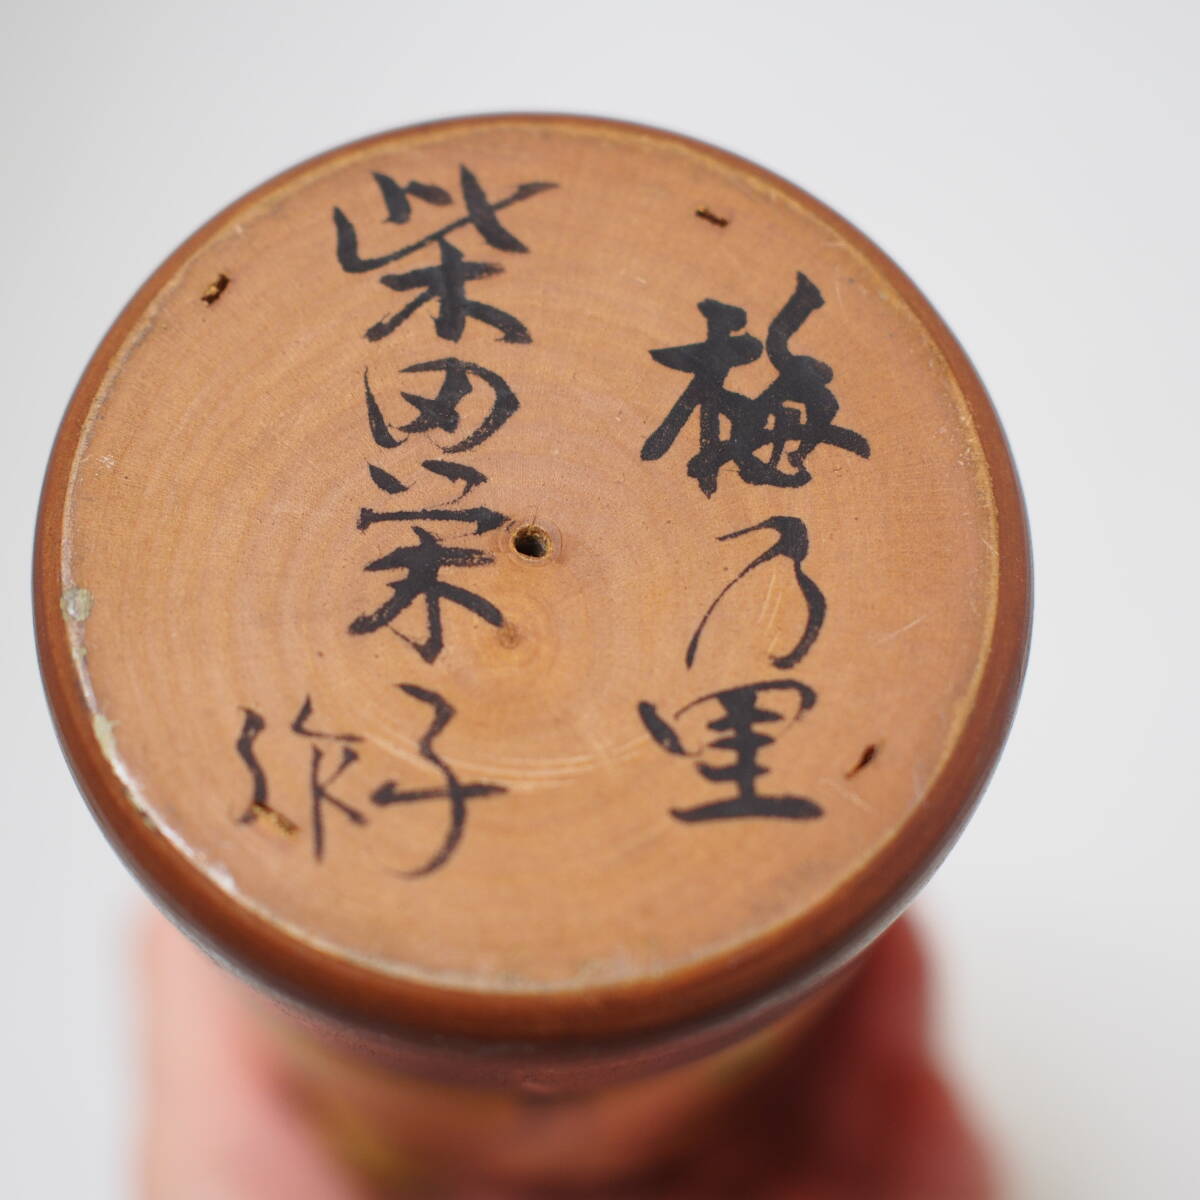 梅乃里
柴田栄子作